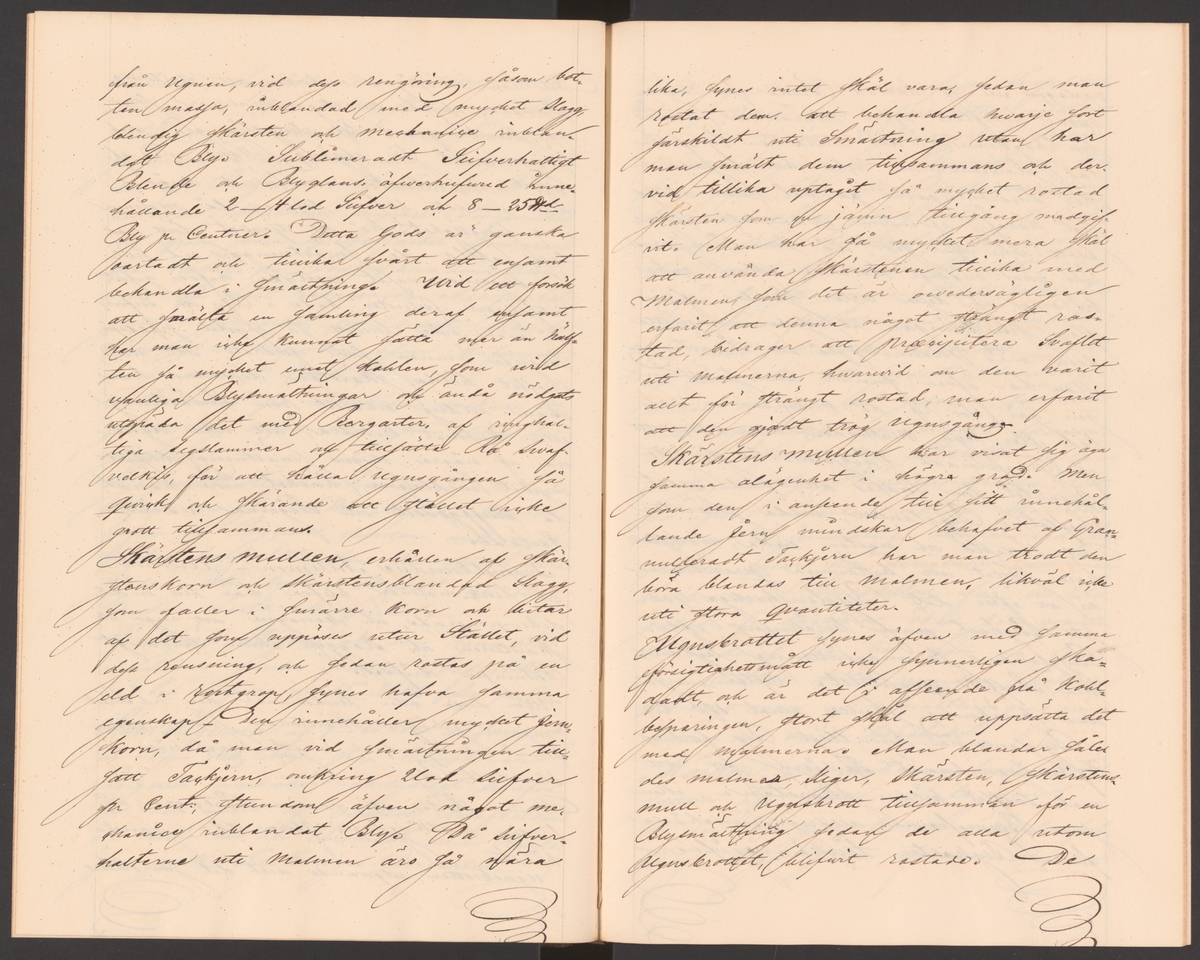 från Ugnen, vid dess rengöring, såsom bot-
ten massa, inblandad med mycket Slagg,
blendig Skärsten och mechanice inblan-
dat Bly. Sublimeradt Silfverhaltigt
Blende och Blyglans, äfverhufvud inne-
hållande 2–4 lod Silfver och 8–25
Bly pr Centner. Detta Gods är ganska
och svårt att ensamt
behandla i smältning. Wid ett försök
att smälta en samling deraf ensamt
har man icke kunnat sätta mer än hälf-
ten så mycket emot Kohlen, som wid
vanliga Blysmältningar och ändå nödgats
utspäda det med af ringhal-
tiga Sigslammer och tillsätta Rå swaf-
velkis, för att hålla Ugnsgången så
qvick och skärande att Stället icke
grott tillsammans.
Skärstens mullen, erhållen af Skär-
stenskorn och Skärstensblandad Slagg,
som faller i smärre Korn och bitar
af det som uppöses utur Stället, vid
dess rensning, och sedan rostas på en
eld i rostgrop, synes hafva samma
egenskap. Den innehåller mycket jern-
korn, då man vid smältningen till-
satt Tackjern, omkring 2 lod silfver
pr Cent:, stundom äfven något me-
chanice inblandat Bly. Då silfver-
halterne uti Malmen äro så nära
lika, synes intet skäl vara, sedan man
rostat dem, att behandla hwarje sort
särskildt uti Smältning utan har
man smält dem tillsammans och der-
vid tillika uptagit så mycket rostad
Skärsten som en jämn tillgång medgif-
vit. Man har så mycket mera skäl
att använda Skärstenen tillika med
Malmen, som det är owedersägligen
erfarit att denna något strängt ros-
tad, bidrager att præcipitera Svaflet
uti malmerna, hwarwid om den varit
allt för strängt rostad, man erfarit
att den gjordt trög Ugnsgång.
Skärstens mullen har visat sig äga
samma olägenhet i högre grad. Men
som den i anseende till sitt innehål-
lande Jern minskar behofvet af Gran-
nulleradt Tackjern har man trodt den
böra blandas till Malmen, likväl icke
uti stora qvantiteter.
Ugnsbrottet synes äfven med samma
försigtighetsmått icke synnerligen ska-
dadt, och är det i afseende på Kohl
besparingen, stort skäl att uppsätta det
med Malmerna. Man blandar såle-
des malmer, Siger, Skärsten, Skärstens-
mull och Ugnsbrott tillsamman för en
Blysmältning sedan de alla utom
Ugnsbrottet, blifvit rostade. De